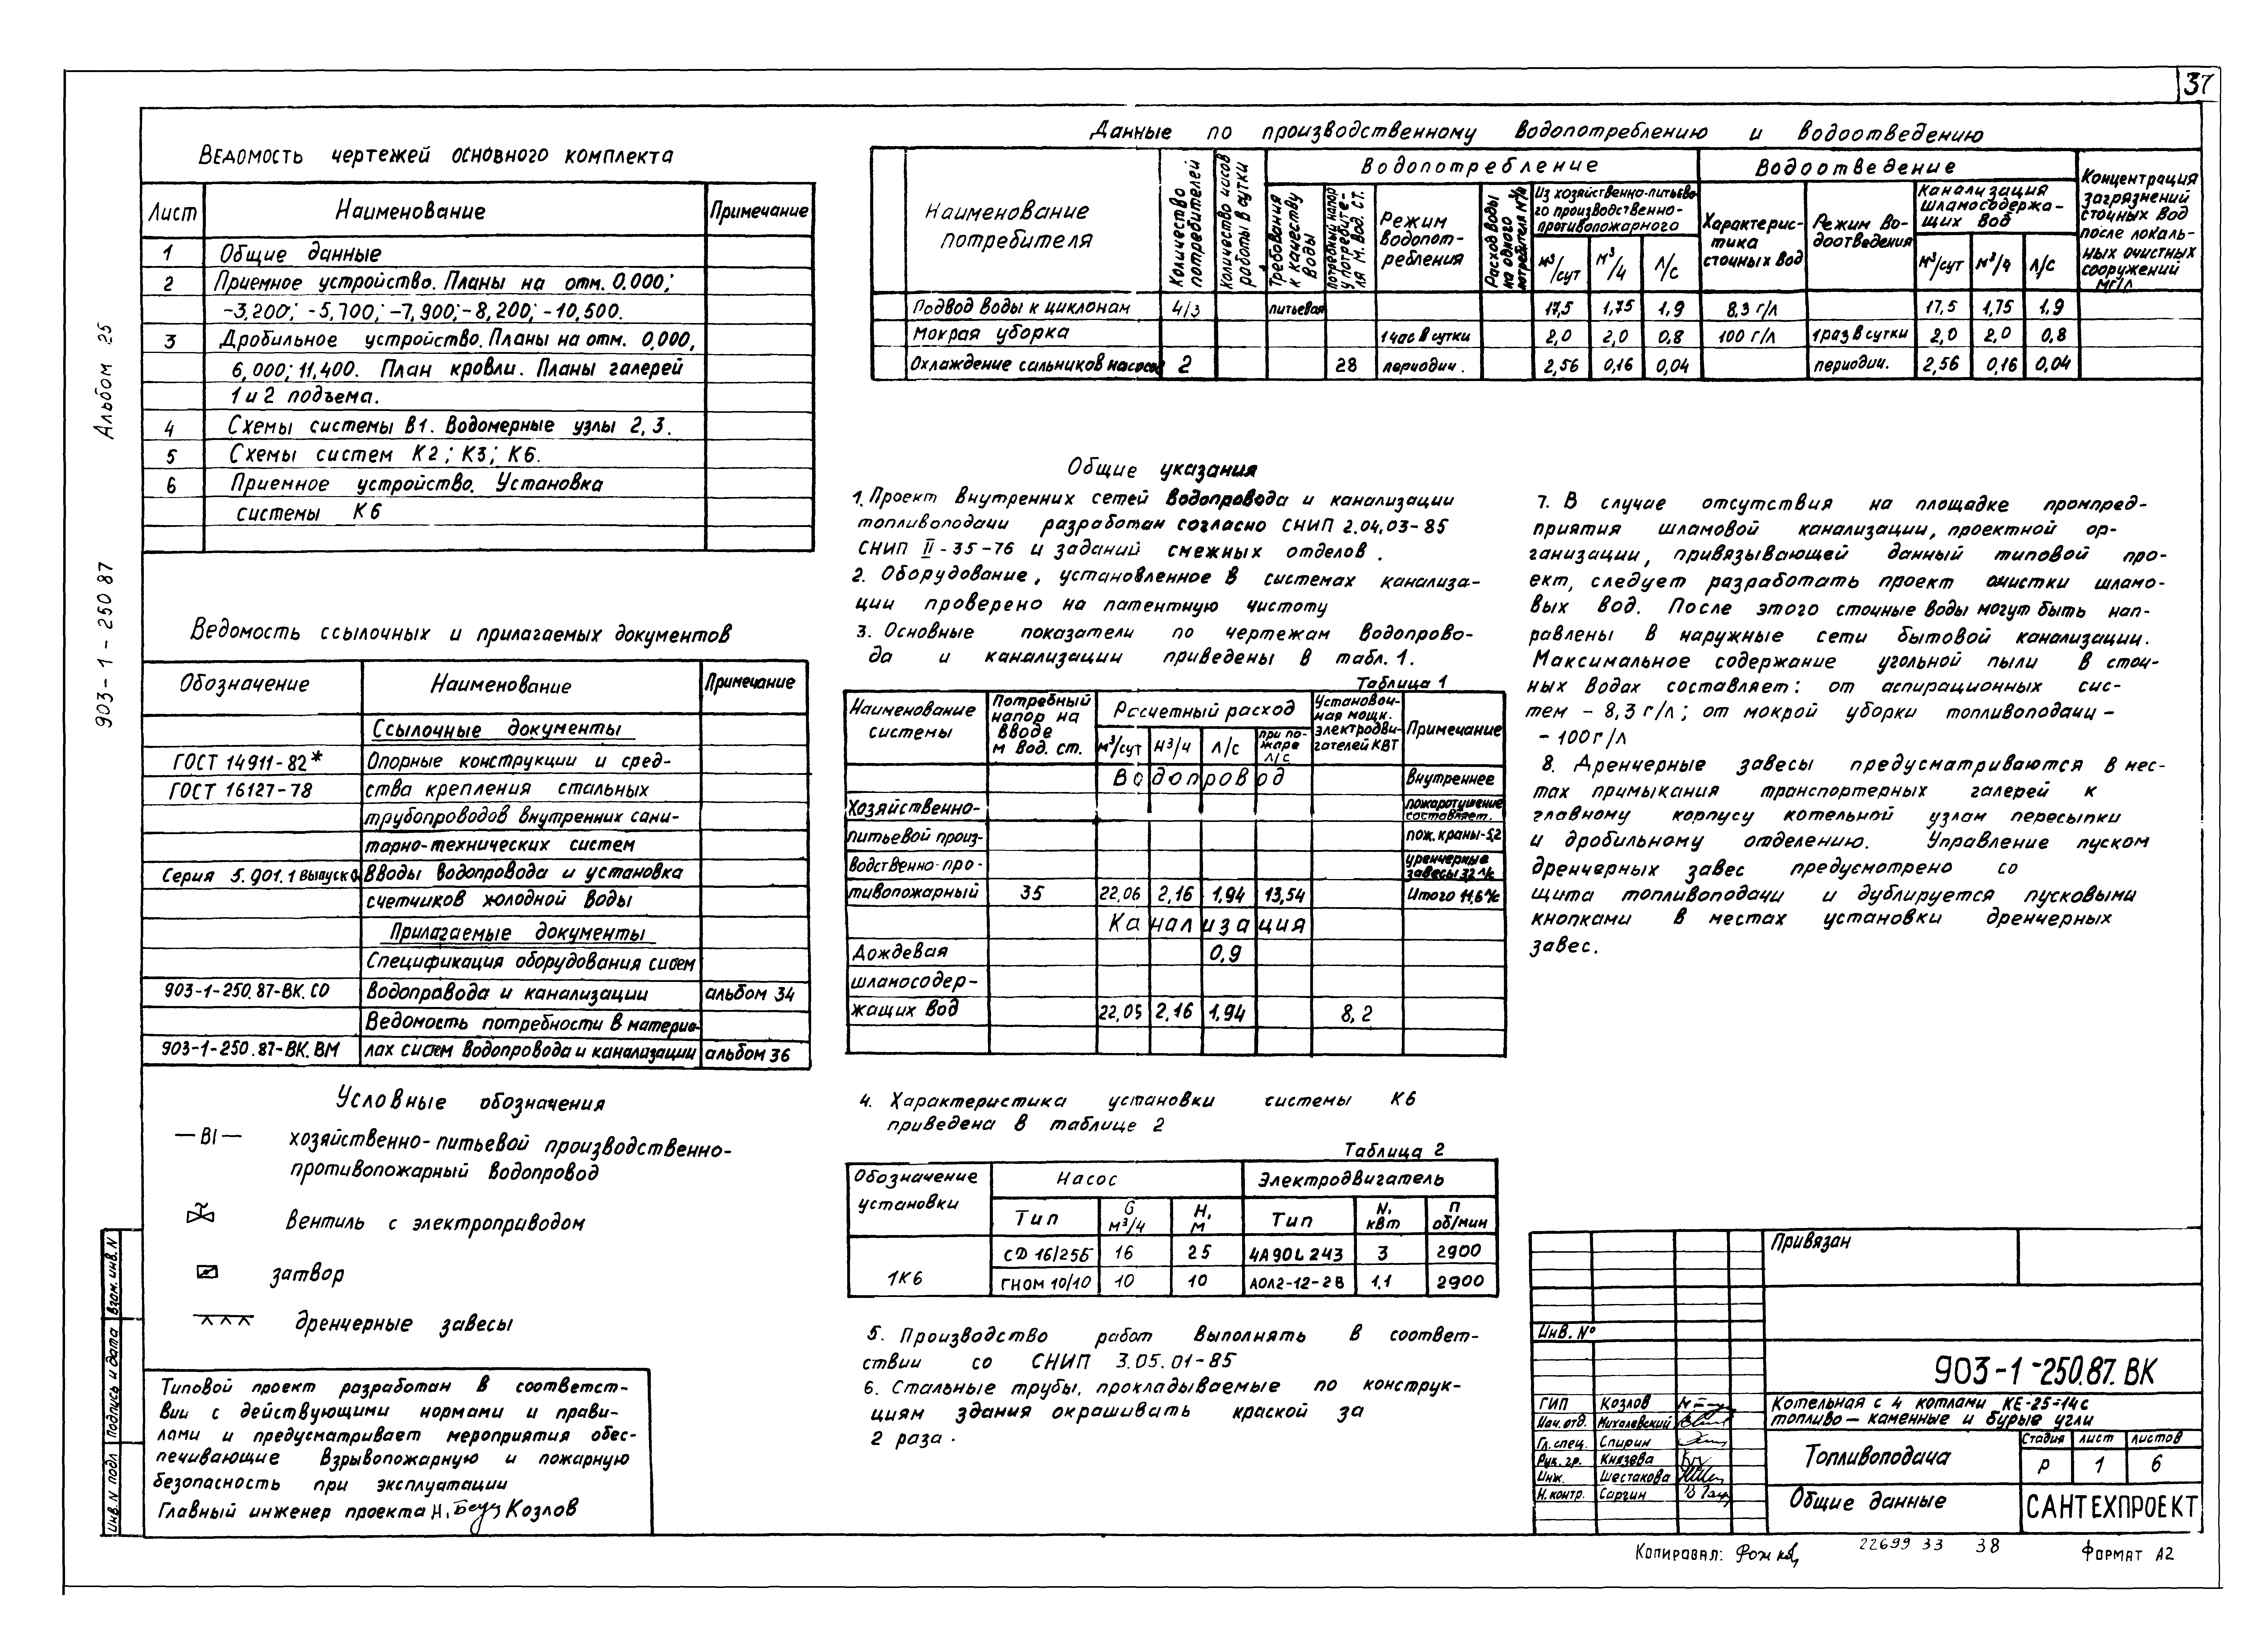 37
Альбом 25
903-1-250 87
Ведомость чертежей основного комплекта
Лист Наименование Примечание
1 Общие данные
2 Приемное устройство. Планы на отм. 0.000;
-3,200; -5,700; -7,900; -8,200; -10,500.
3 Дробильное устройство. Планы на отм. 0,000,
6,000; 11,400. План кровли. Планы галерей
1 и 2 подъема.
4 Схемы системы В1. Водомерные узлы 2,3.
5 Схемы систем К2; К3; К6.
6 Приемное устройство. Установка
системы К6
Ведомость ссылочных и прилагаемых документов
Обозначение Наименование Примечание
Ссылочные документы
ГОСТ 14911-82* Опорные конструкции и сред-
ГОСТ 16127-78 ства крепления стальных
трубопроводов внутренних сани-
тарно-технических систем
Серия 5.901.1 Выпуск 0 Вводы водопровода и установка
счетчиков холодной воды
Прилагаемые документы
Спецификация оборудования систем
903-1-250.87-ВК.СО водопровода и канализации альбом 34
Ведомость потребности в материа-
903-1-250.87-ВК.ВМ лах систем водопровода и канализации альбом 36
Условные обозначения
—В1— хозяйственно-питьевой производственно-
противопожарный водопровод
вентиль с электроприводом
затвор
дренчерные завесы
Типовой проект разработан в соответст-
вии с действующими нормами и прави-
лами и предусматривает мероприятия обес-
печивающие взрывопожарную и пожарную
безопасность при эксплуатации
Главный инженер проекта Козлов
Инв. N подл Подпись и дата Взам. инв. N
Данные по производственному водопотреблению и водоотведению
Наименование потребителя
Количество потребителей
Количество часов работы в сутки
Водопотребление
Требования к качеству воды
Потребный напор у потребителя м. вод. ст.
Режим водопот-
ребления
Расход воды на одного потребителя м³/ч
Из хозяйственно-питьево-
го производственно-
противопожарного
м³/сут м³/ч л/с
Водоотведение
Характерис-
тика
сточных вод
Режим во-
доотведения
Канализация
шламосодержа-
щих вод
м³/сут м³/ч л/с
Концентрация
загрязнений
сточных вод
после локаль-
ных очистных
сооружений
мг/л
Подвод воды к циклонам 4/3 питьевая 17,5 1,75 1,9 8,3 г/л 17,5 1,75 1,9
Мокрая уборка 1 час в сутки 2,0 2,0 0,8 100 г/л 1 раз в сутки 2,0 2,0 0,8
Охлаждение сальников насосов 2 28 периодич. 2,56 0,16 0,04 периодич. 2,56 0,16 0,04
Общие указания
1. Проект внутренних сетей водопровода и канализации
топливоподачи разработан согласно СНИП 2.04.03-85
СНИП II-35-76 и заданий смежных отделов.
2. Оборудование, установленное в системах канализа-
ции проверено на патентную чистоту
3. Основные показатели по чертежам водопрово-
да и канализации приведены в табл. 1.
Таблица 1
Наименование
системы
Потребный
напор на
вводе
м вод. ст.
Расчетный расход
м³/сут м³/ч л/с при по-
жаре
л/с
Установоч-
ная мощн.
электродви-
гателей КВТ
Примечание
Водопровод Внутреннее
Хозяйственно- пожаротушение
составляет.
питьевой произ- пож. краны-5,2
водственно-про- дренчерные
завесы 3,2 л/с
тивопожарный 35 22,06 2,16 1,94 13,54 Итого 11,6 л/с
Канализация
Дождевая 0,9
шламосодер-
жащих вод 22,05 2,16 1,94 8,2
4. Характеристика установки системы К6
приведена в таблице 2
Таблица 2
Обозначение
установки
Насос Электродвигатель
Тип G м³/ч Н, м Тип N, квт П об/мин
СД 16/25Б 16 25 4А90L 243 3 2900
1К6 ГНОМ 10/10 10 10 АОЛ2-12-2В 1,1 2900
5. Производство работ выполнять в соответ-
ствии со СНИП 3.05.01-85
6. Стальные трубы, прокладываемые по конструк-
циям здания окрашивать краской за
2 раза.
7. В случае отсутствия на площадке промпред-
приятия шламовой канализации, проектной ор-
ганизации, привязывающей данный типовой про-
ект, следует разработать проект очистки шламо-
вых вод. После этого сточные воды могут быть нап-
равлены в наружные сети бытовой канализации.
Максимальное содержание угольной пыли в сточ-
ных водах составляет: от аспирационных сис-
тем - 8,3 г/л; от мокрой уборки топливоподачи -
- 100 г/л
8. Дренчерные завесы предусматриваются в мес-
тах примыкания транспортерных галерей к
главному корпусу котельной узлам пересыпки
и дробильному отделению. Управление пуском
дренчерных завес предусмотрено со
щита топливоподачи и дублируется пусковыми
кнопками в местах установки дренчерных
завес.
Привязан
Инв. N°
903-1-250.87. ВК
ГИП Козлов
Нач. отд. Михалевский
Гл. спец. Спирин
Рук. гр. Князева
Инж. Шестакова
Н. контр. Саргин
Котельная с 4 котлами КЕ-25-14с
топливо — каменные и бурые угли
Топливоподача
Стадия лист листов
Р 1 6
Общие данные
САНТЕХПРОЕКТ
Копировал:
22699 33 38
Формат А2